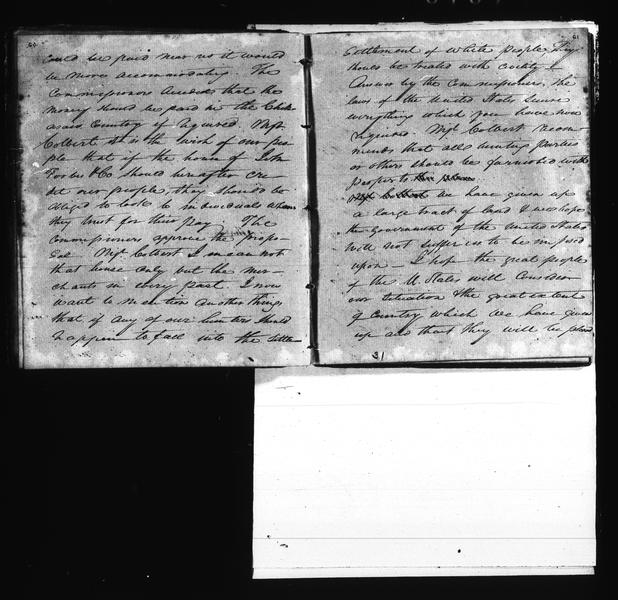 60
could be paid near us it would
be more accommodating. The
Commissioners decided that the
money should be paid in the Chick
asaw Country if required. Majr.
Colbert it is the wish of our peo
ple that if the house of John
Forbes & Co should hereafter cre
dit our people, they should be
obliged to look to individuals whom
they trust for their pay. The
Commissioners approve the propo
sal. Majr. Colbert I mean not
that house only but the mer-
chants in every part. I now
want to mention another thing
that if any of our hunters should
happen to fall into the settle
61
Settlement of white people, they
should be treated with civility
Answer by the Commissioners, the
laws of the United States secure
everything which you have now
required. Majr. Colbert recom-
mends that all hunting parties
or others should be furnished with
papers to
we have given up
a large tract of land & we hope
the government of the United States
will not suffer us to be imposed
upon — I hope the great people
of the U. States will Consider
our situation & the great extent
of Country which we have given
up and that they will be
31